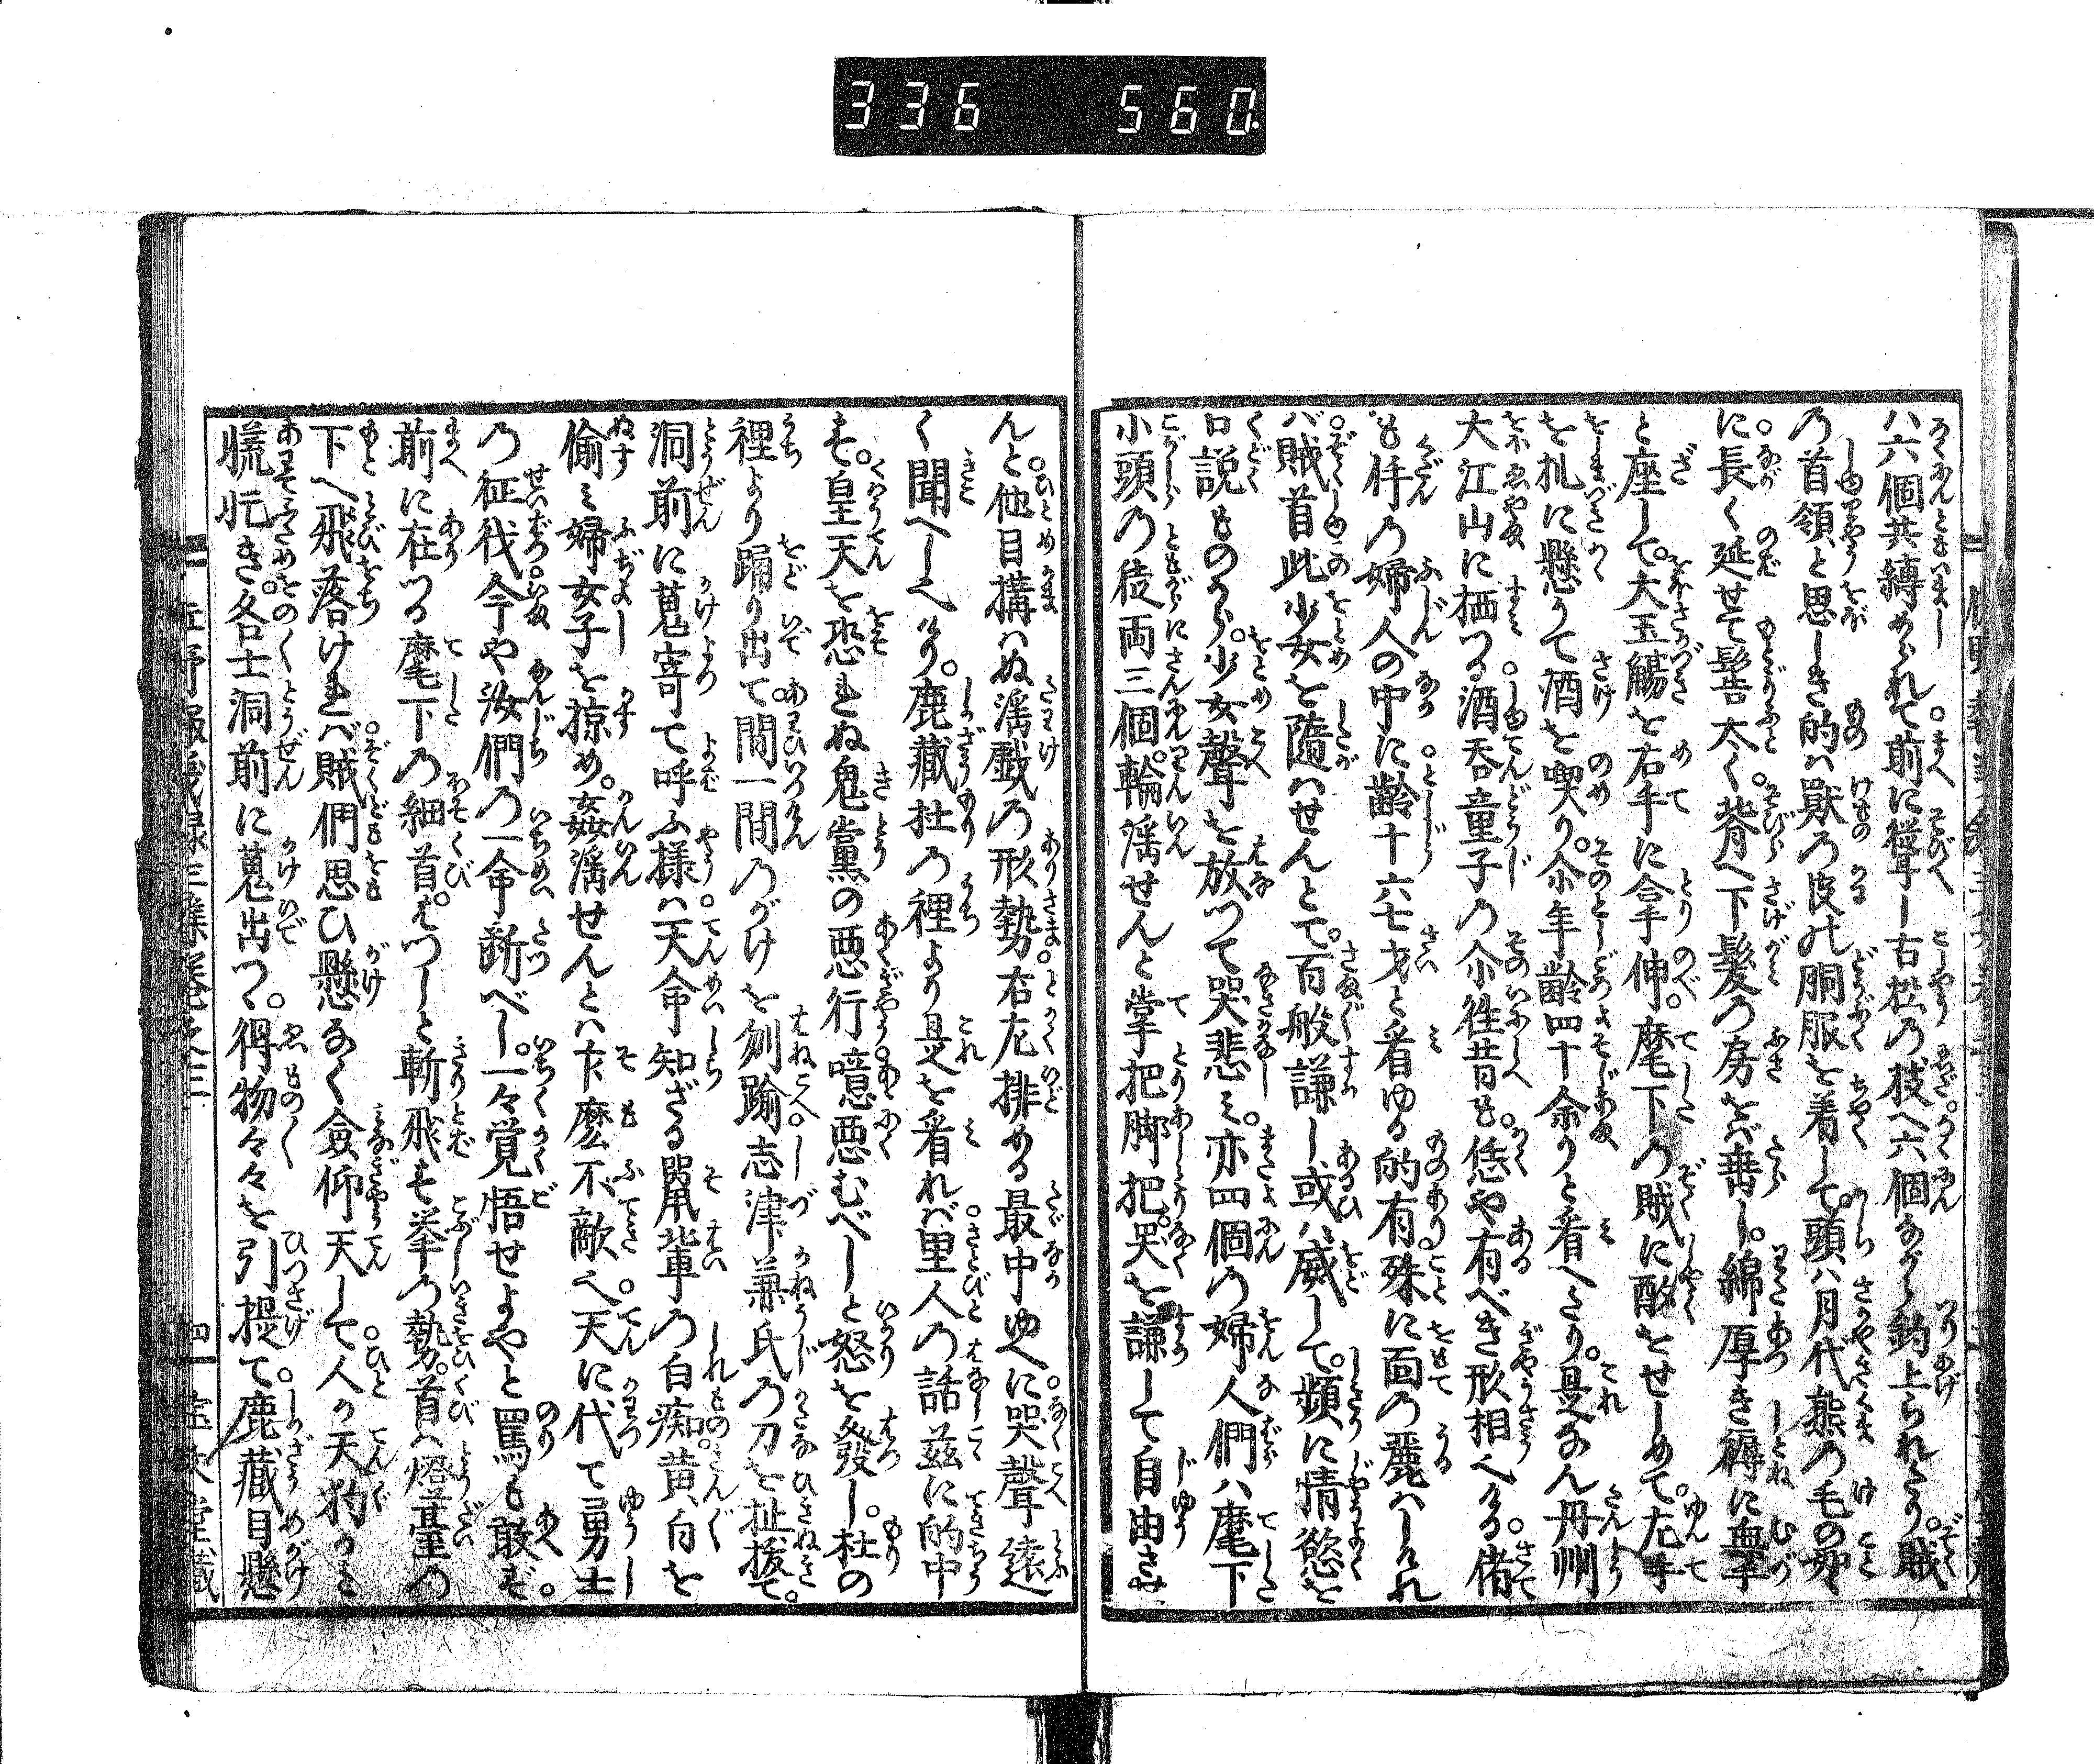 336 560
八六個共縛められて前に聳し古松の枝へ六個ながら釣上られたり。賊
の首領と思しき的は獣の皮の胴服を着して。頭は月代熊の毛の如
に長く延せて髻太く。背へ下髪の房をば垂し。綿厚き褥に無手
と座して。大玉觴を右手に拿伸。麾下の賊に酌をせしめて。左手
を扎に懸うて酒を喫り。尒年齢四十余りと看へたり。是なん丹州
大江山に栖つる酒呑童子の尒徃昔も。恁や有べき形相へ。偖
も件の婦人の中に齢十六七才と看ゆる的有。殊に面の麗はしけれ
ば賊首此少女を随はせんとて。百般謙し或は威して。頻に情慾を
口説ものから。少女聲を放つて哭悲み。亦四個の婦人們は麾下
小頭の徒両三個。輪淫せんと掌把脚把。哭を謙して自由させ
んと。他目搆はぬ淫戯の形勢。右左排める最中ゆへに。哭聲遠
く聞へしへり。鹿蔵杜の裡より是を看れば里人の話茲に的中
す。皇天を恐れぬ鬼黨の悪行噫悪むべしと怒を發し。杜の
裡より踊り出て。間一間のがけを刎踰志津兼氏の刀を扯抜て。
洞前に蒐寄て呼ふ様は。天命知ざる鼠輩の白痴。黄白を
偸み婦女子を掠め。姦淫せんとは什麼不敵へ。天に代て勇士
の征伐。今や汝們の一命断べし。一々覚悟せよやと罵も敢ず。
前に在つる麾下の細首。はつしと斬飛す拳の勢。首は燈臺の
下へ飛落ければ。賊們思ひ懸なく僉仰天して。人か天狗かと
慌忙き。各士洞前に蒐出つゝ。得物々々を引提て。鹿蔵目懸
四